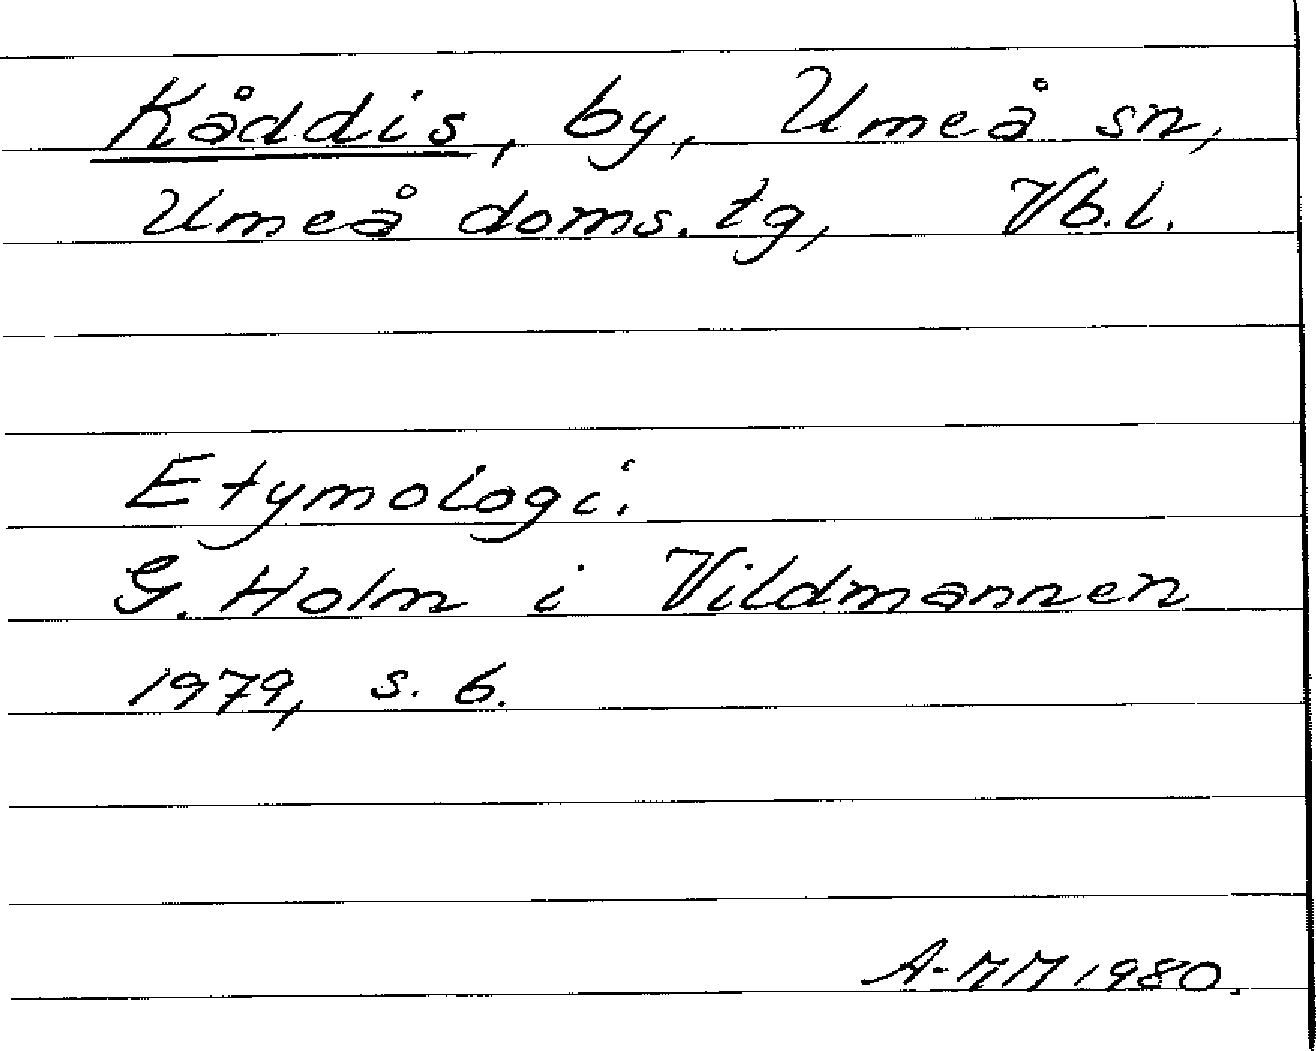 Kåddis, by, Umeå sn,
Umeå doms. tg, Vb. l.
Etymologi.
G. Holm i Vildmannen
1979, s. 6.
A-MM 1980.